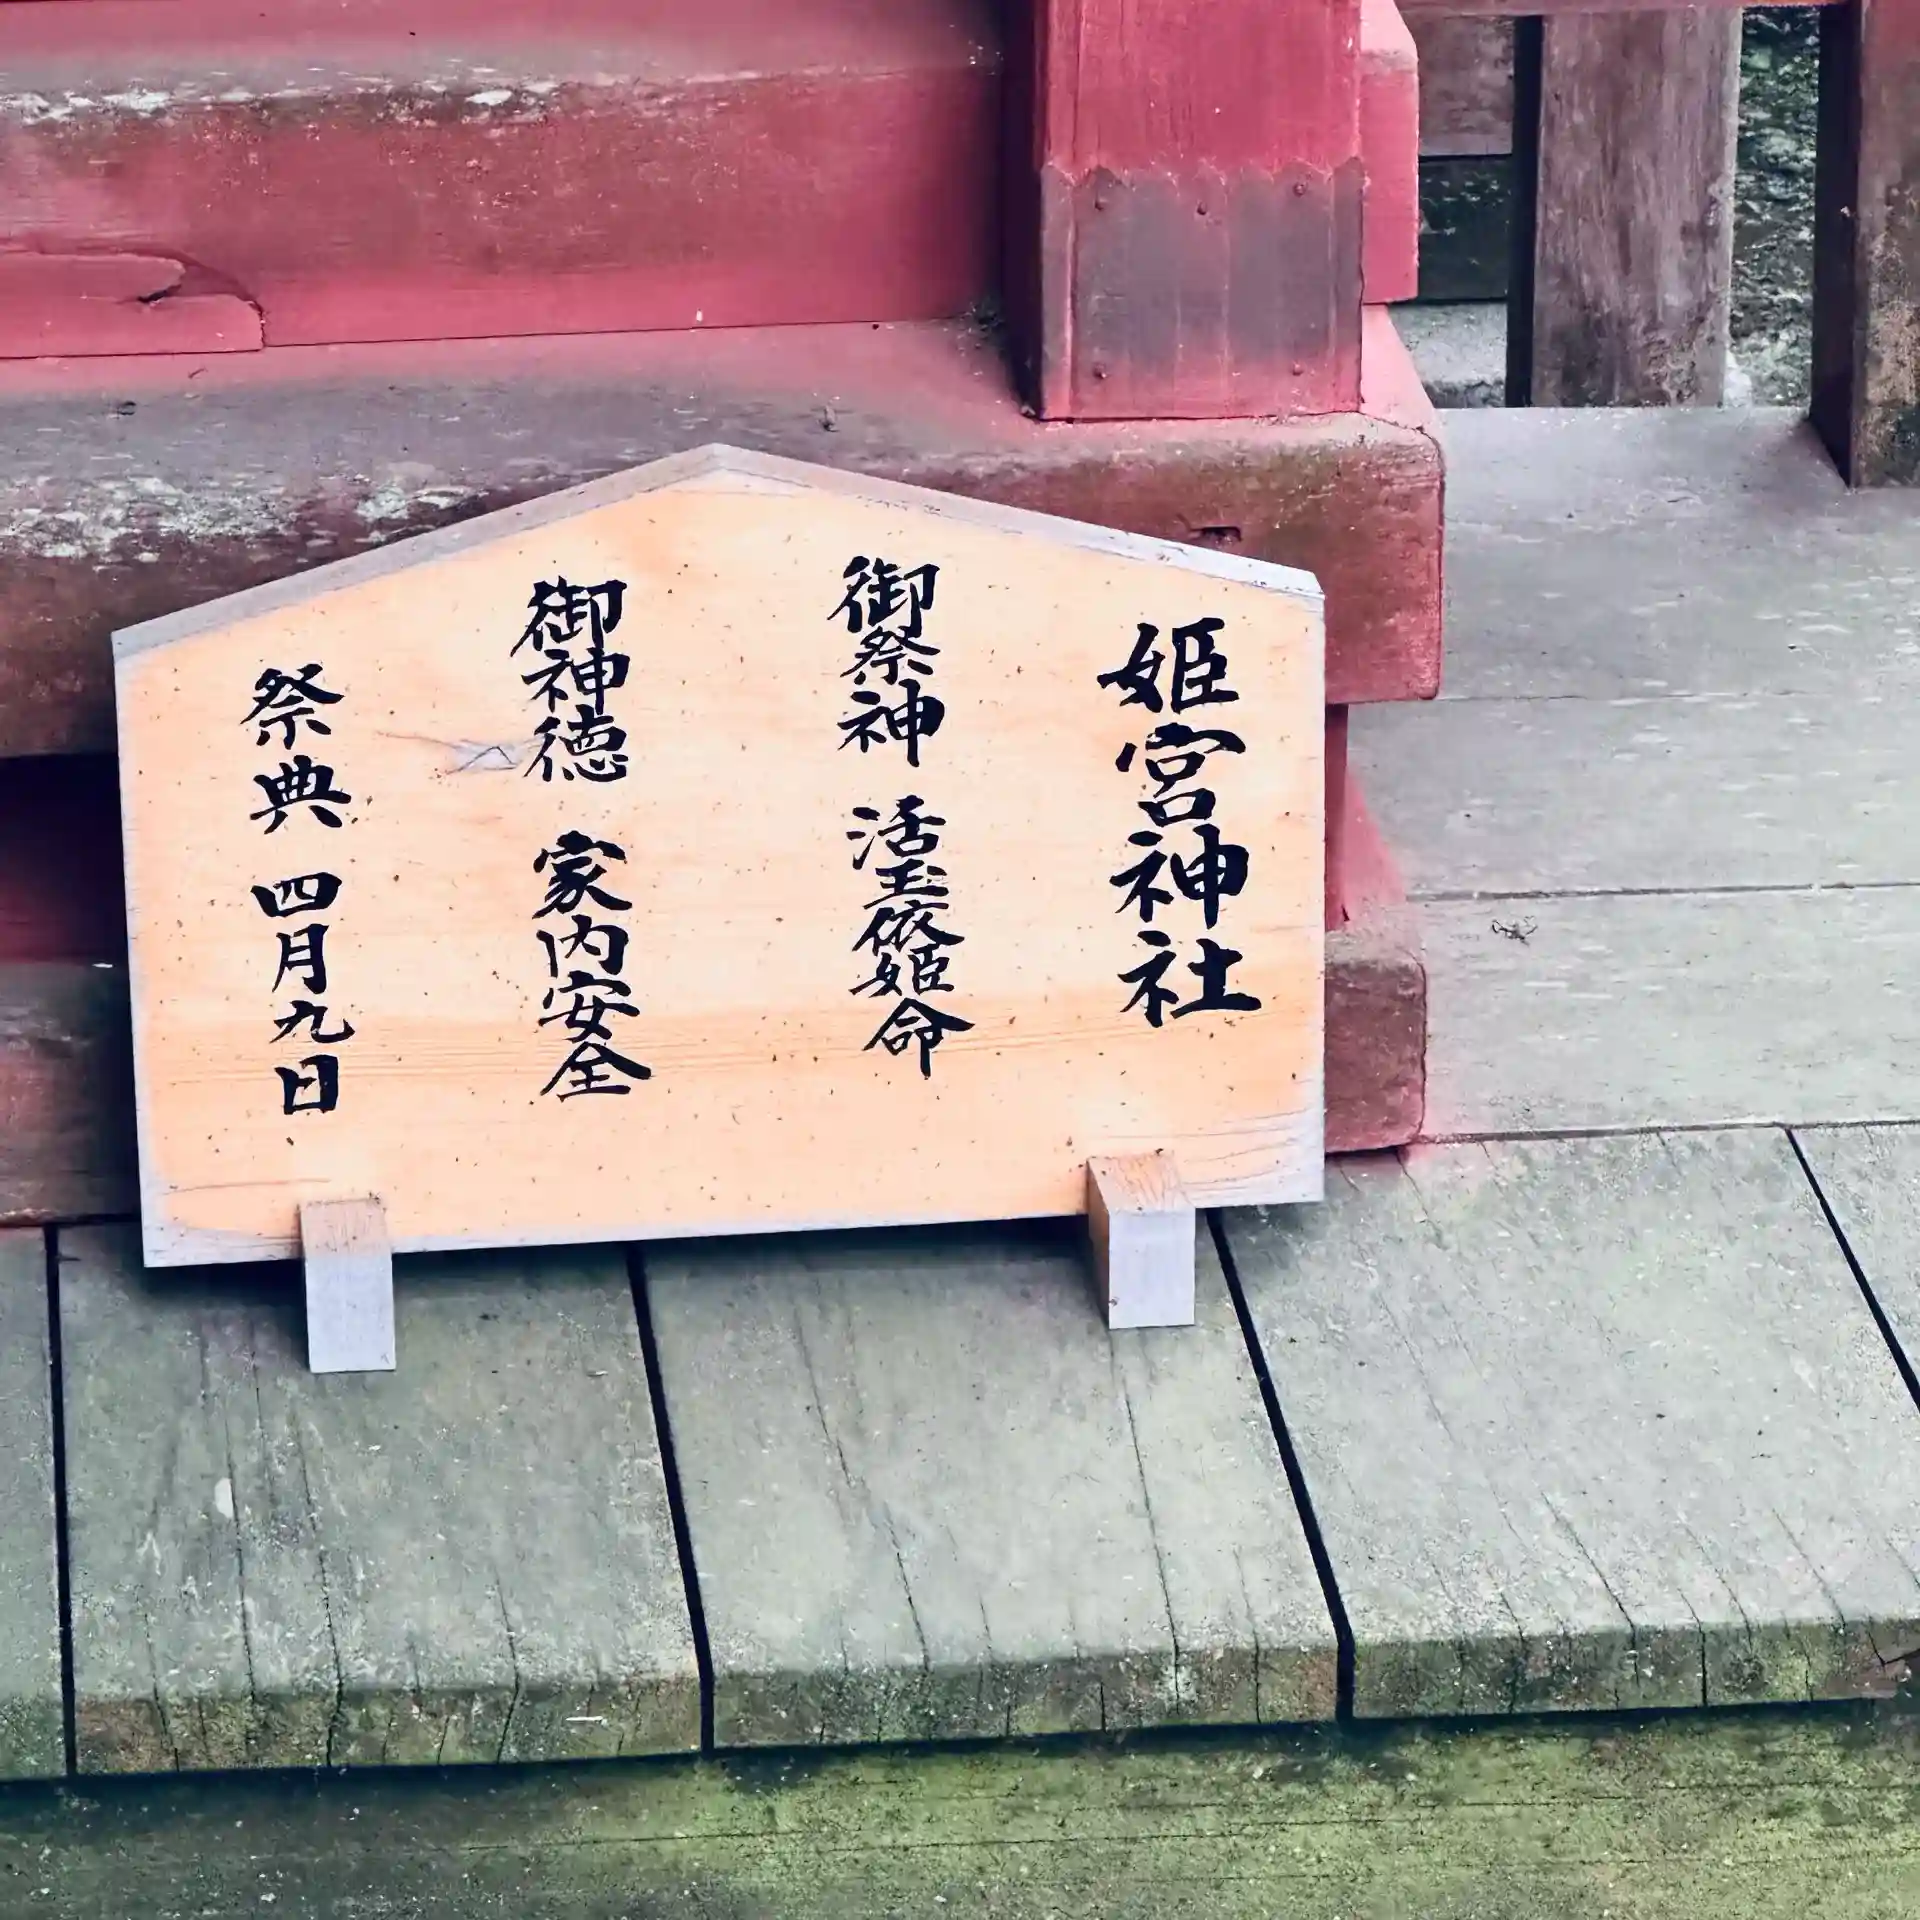 姫宮神社
御祭神 活玉依姫命
御神徳 家内安全
祭典 四月九日